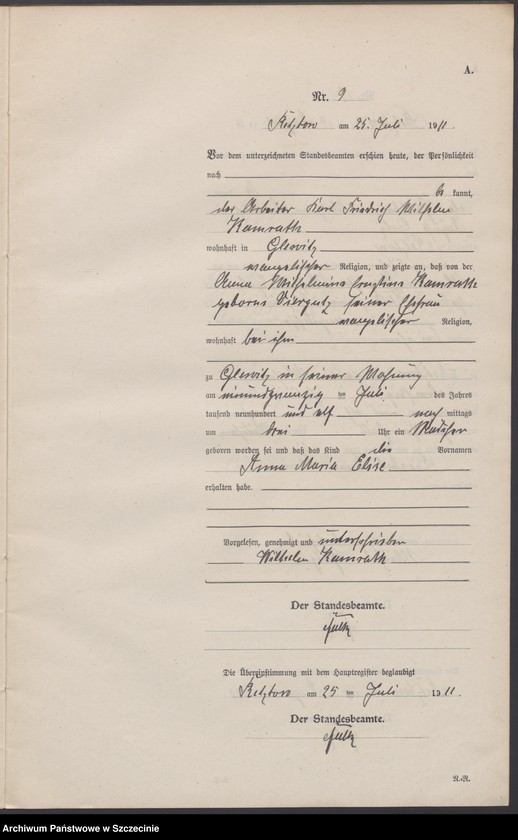 A.
Nr. 9
am 25. Juli 1911.
Vor dem unterzeichneten Standesbeamten erschien heute, der Persönlichkeit
nach
be kannt,
der Arbeiter Karl Friedrich Wilhelm
Kamrath
wohnhaft in Glewitz
evangelischer Religion, und zeigte an, daß von der
Anna Wilhelmine Ernstine Kamrath
geborene Viergutz seiner Ehefrau
evangelischer Religion,
wohnhaft bei ihm
zu Glewitz in seiner Wohnung
am ten Juli des Jahres
tausend neunhundert und elf nach mittags
um drei Uhr ein Mädchen
geboren worden sei und daß das Kind die Vornamen
Anna Maria Elise
erhalten habe.
Vorgelesen, genehmigt und unterschrieben
Wilhelm Kamrath
Der Standesbeamte.
Die Übereinstimmung mit dem Hauptregister beglaubigt
am 25 ten Juli 1911.
Der Standesbeamte.
A.-R.
Archiwum Państwowe w Szczecinie